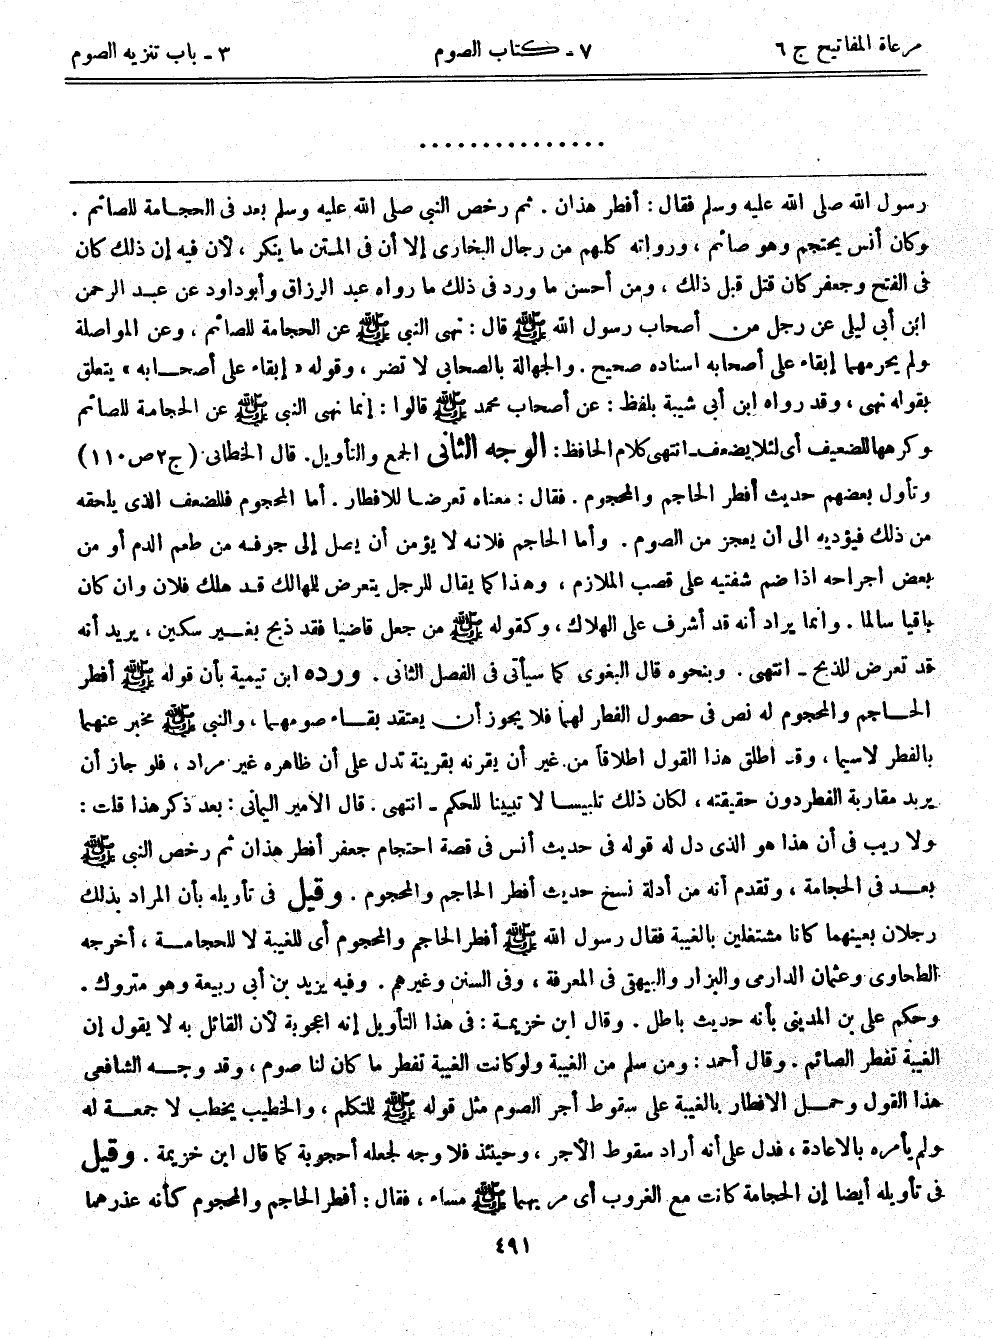 مرعاة المفاتيح ج ٦
٧ ـ كتاب الصوم
٣ ـ باب تنزيه الصوم
...............
رسول الله صلى الله عليه وسلم فقال : أفطر هذان . ثم رخص النبى صلى الله عليه وسلم بعد فى الحجامة للصائم .
وكان أنس يحتجم وهو صائم ، ورواته كلهم من رجال البخارى إلا أن فى المتن ما ينكر ، لأن فيه إن ذلك كان
فى الفتح وجعفر كان قتل قبل ذلك ، ومن أحسن ما ورد فى ذلك ما رواه عبد الرزاق وأبوداود عن عبد الرحمن
ابن أبى ليلى عن رجل من أصحاب رسول الله ﷺ قال : نهى النبى ﷺ عن الحجامة للصائم ، وعن المواصلة
ولم يحرمهما إبقاء على أصحابه اسناده صحيح . والجهالة بالصحابى لا تضر ، وقوله « إبقاء على أصحابه » يتعلق
بقوله نهى ، وقد رواه ابن أبى شيبة بلفظ : عن أصحاب محمد ﷺ قالوا : إنما نهى النبى ﷺ عن الحجامة للصائم
وكرهها للضعيف أى لئلا يضعف ـ انتهى كلام الحافظ : الوجه الثانى الجمع والتأويل. قال الخطابى (ج٢ص١١٠)
وتأول بعضهم حديث أفطر الحاجم والمحجوم . فقال : معناه تعرضا للافطار . أما المحجوم فللضعف الذى يلحقه
من ذلك فيؤديه الى أن يعجز من الصوم . وأما الحاجم فلانه لا يؤمن أن يصل إلى جوفه من طعم الدم أو من
بعض اجراحه اذا ضم شفتيه على قصب الملازم ، وهذا كما يقال للرجل يتعرض للهالك قد هلك فلان وان كان
باقيا سالما . وانما يراد أنه قد أشرف على الهلاك ، وكقوله ﷺ من جعل قاضيا فقد ذبح بغير سكين ، يريد أنه
قد تعرض للذبح ـ انتهى . وبنحوه قال البغوى كما سيأتى فى الفصل الثانى . ورده ابن تيمية بأن قوله ﷺ أفطر
الحاجم والمحجوم له نص فى حصول الفطر لهما فلا يجوز أن يعتقد بقاء صومهما ، والنبى ﷺ مخبر عنهما
بالفطر لاسيما ، وقد اطلق هذا القول اطلاقاً من غير أن يقرنه بقرينة تدل على أن ظاهره غير مراد ، فلو جاز أن
يريد مقاربة الفطردون حقيقته ، لكان ذلك تلبيسا لا تبيينا للحكم ـ انتهى . قال الأمير اليمانى : بعد ذكر هذا قلت :
ولا ريب فى أن هذا هو الذى دل له قوله فى حديث أنس فى قصة احتجام جعفر أفطر هذان ثم رخص النبى ﷺ
بعد فى الحجامة ، وتقدم أنه من أدلة نسخ حديث أفطر الحاجم والمحجوم . وقيل فى تأويله بأن المراد بذلك
رجلان بعينهما كانا مشتغلين بالغيبة فقال رسول الله ﷺ أفطر الحاجم والمحجوم أى للغيبة لا للحجامة ، أخرجه
الطحاوى وعثمان الدارمى والبزار والبيهقى فى المعرفة ، وفى السنن وغيرهم . وفيه يزيد بن أبى ربيعة وهو متروك .
وحكم على بن المدينى بأنه حديث باطل . وقال ابن خزيمة : فى هذا التأويل إنه اعجوبة لأن القائل به لا يقول إن
الغيبة تفطر الصائم . وقال أحمد : ومن سلم من الغيبة ولوكانت الغيبة تفطر ما كان لنا صوم ، وقد وجه الشافعى
هذا القول وحمل الافطار بالغيبة على سقوط أجر الصوم مثل قوله ﷺ للتكلم ، والخطيب يخطب لا جمعة له
ولم يأمره بالاعادة ، فدل على أنه أراد سقوط الأجر ، وحينئذ فلا وجه لجعله أحجوبة كما قال ابن خزيمة . وقيل
فى تأويله أيضا إن الحجامة كانت مع الغروب أى مر بهما ﷺ مساء ، فقال : أفطر الحاجم والمحجوم كأنه عذرهما
٤٩١